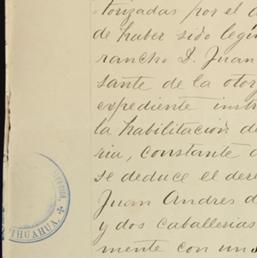 torizadas por el
de haber sido legi
rancho D. Juan
sante de la otor
expediente
la habilitacion de
ria, constante
se deduce el dere
Juan Andres d
y dos caballerias
mente con un
CHIHUAHUA